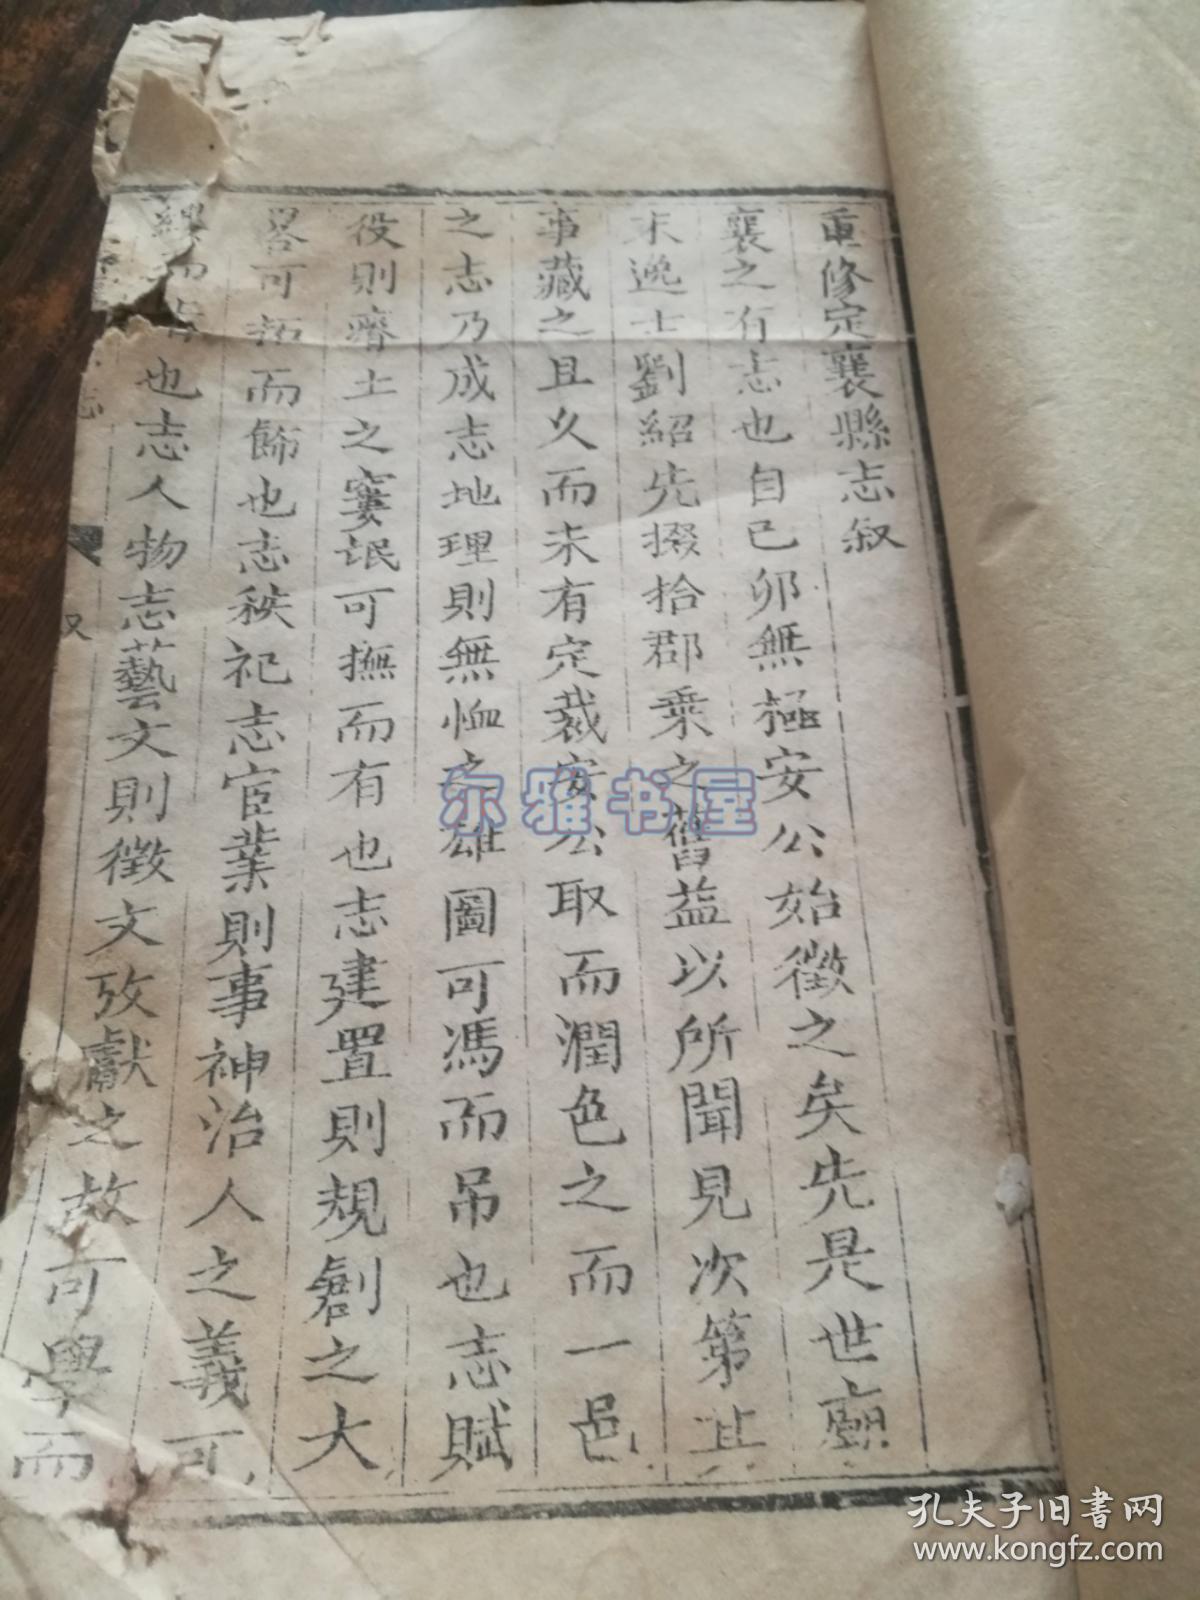 重修定襄縣志叙
襄之有志也自己卯無極安公始徵之矣先是世廟
末逸士劉紹先掇拾郡乗之舊益以所聞見次第其
事藏之且久而未有定裁安公取而潤色之而一邑
之志乃成志地理則無恤之雄圖可馮而吊也志賦
役則瘠土之寠氓可撫而有也志建置則規創之大
畧可拓而飾也志秩祀志宦業則事神治人之義可
而 也志人物志藝文則徵文攷獻之故可學而
志
叙
尔雅书屋
孔夫子旧书网
www.kongfz.com